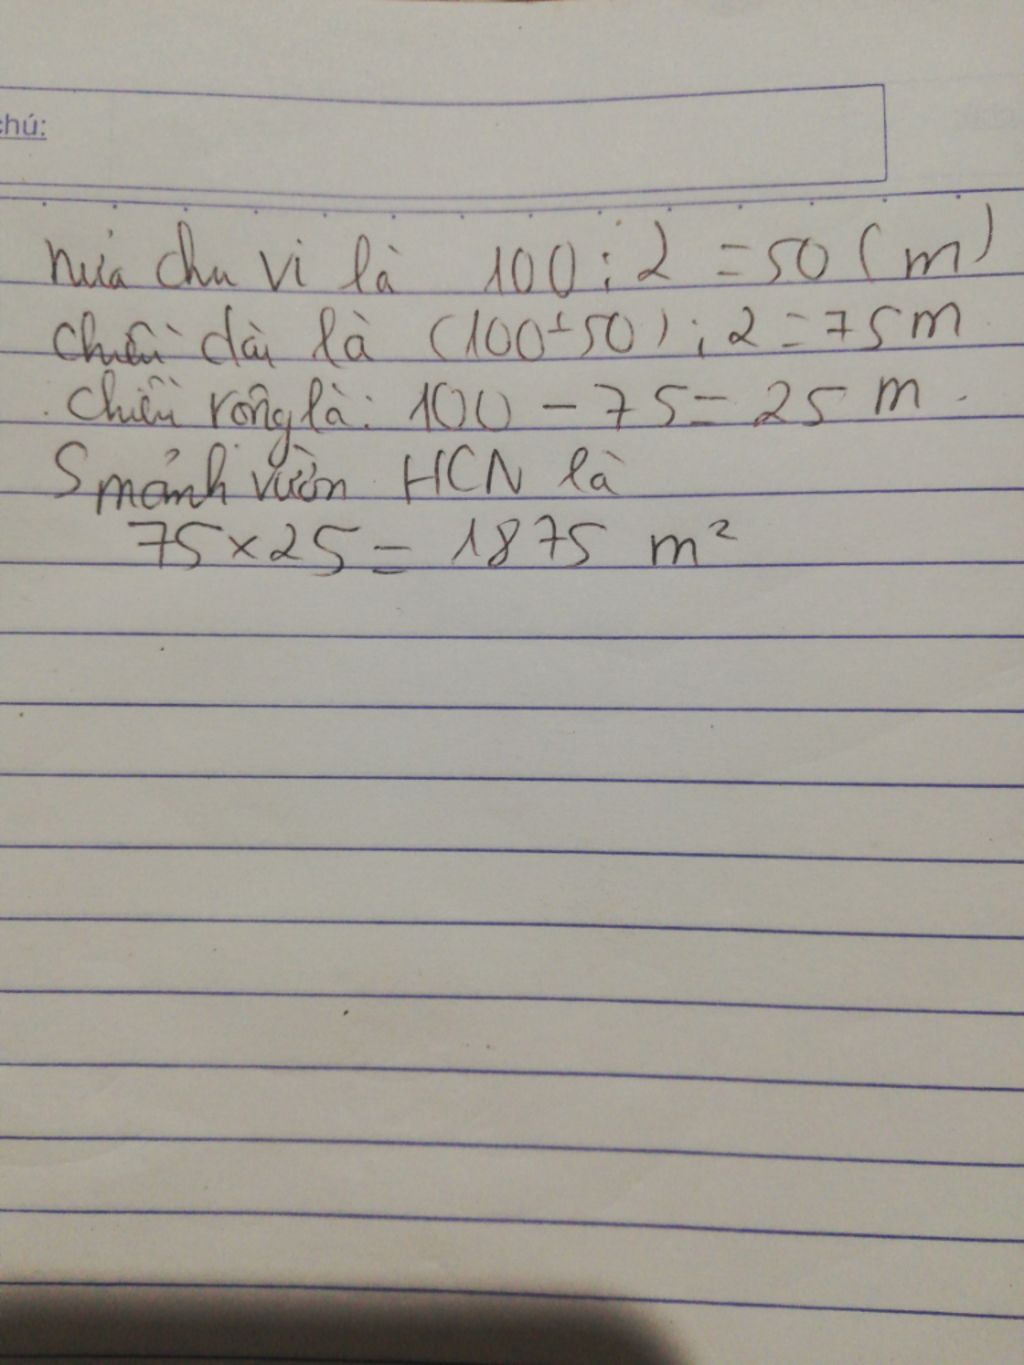 chú:
nửa chu vi là 100 : 2 = 50 (m)
chiều dài là (100+50) : 2 = 75 m
chiều rộng là: 100 - 75 = 25 m.
S mảnh vườn HCN là
75 x 25 = 1875 m²